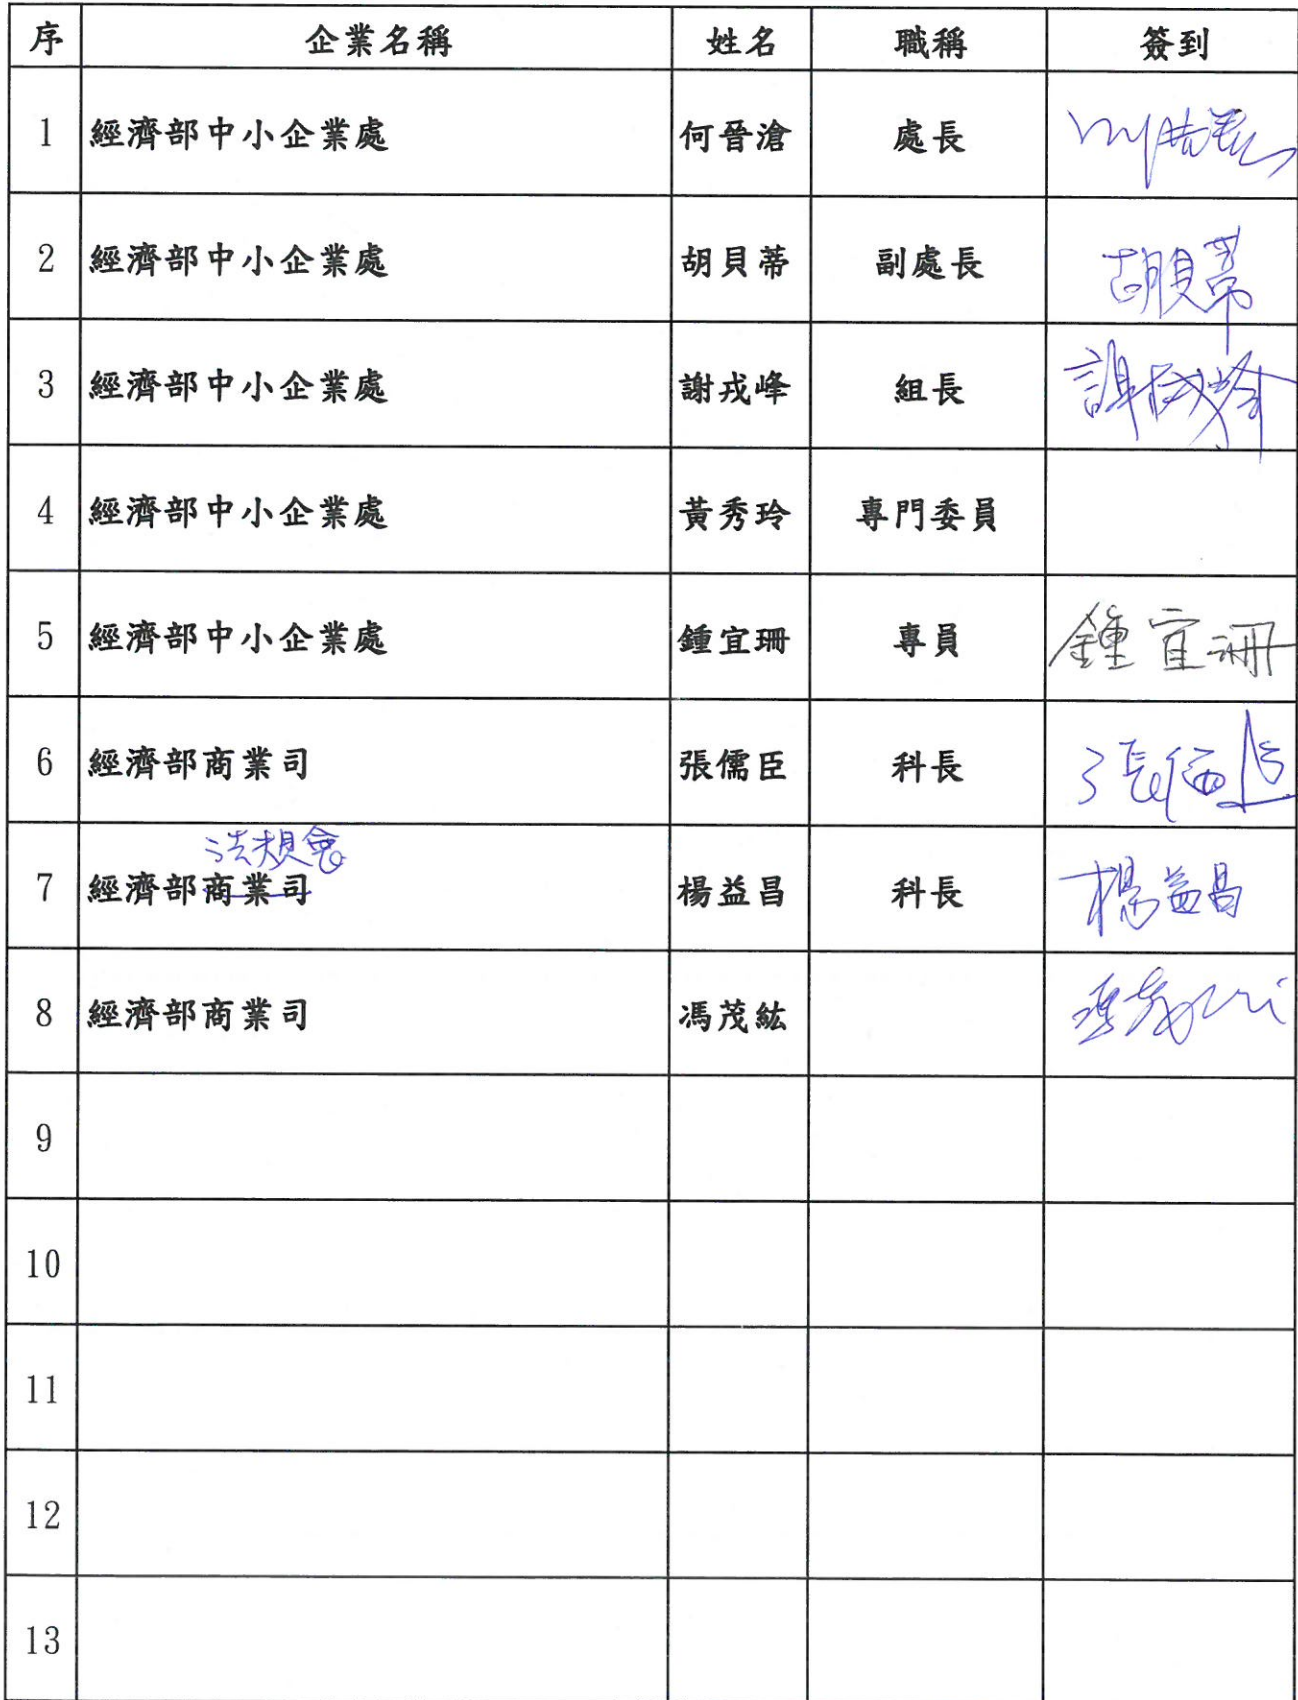 序 企業名稱 姓名 職稱 簽到
1 經濟部中小企業處 何晉滄 處長
2 經濟部中小企業處 胡貝蒂 副處長 胡貝蒂
3 經濟部中小企業處 謝戎峰 組長 謝戎峰
4 經濟部中小企業處 黃秀玲 專門委員
5 經濟部中小企業處 鍾宜珊 專員 鍾宜珊
6 經濟部商業司 張儒臣 科長 張儒臣
法規會
7 經濟部商業司 楊益昌 科長 楊益昌
8 經濟部商業司 馮茂紘
9
10
11
12
13